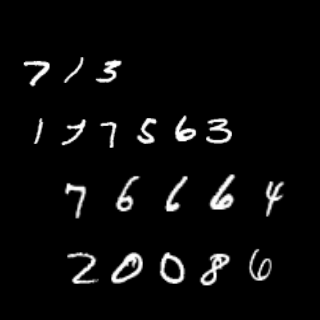 7 1 3
1 7 5 6 3
7 6 6 6 4
2 0 0 8 6